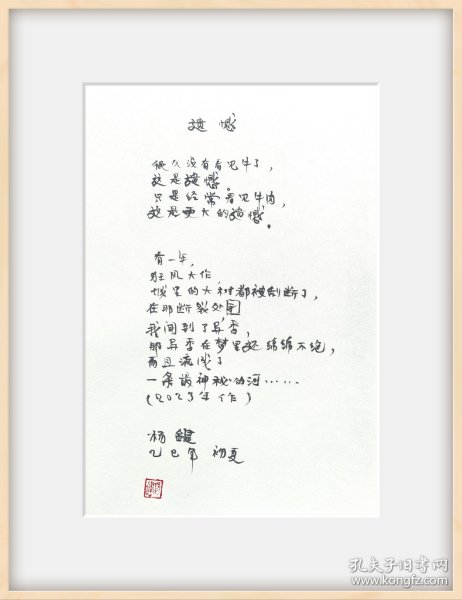 遗憾
很久没有看见牛了，
这是遗憾。
只是经常看见牛肉，
这是更大的遗憾。
有一年，
狂风大作，
城里的大树都被刮断了，
在那断裂处，
我闻到了异香，
那异香在梦里还绵绵不绝，
而且流成了
一条最神秘的河……
（2023年作）
杨键
乙巳年 初夏
孔夫子旧书网
www.kongfz.com